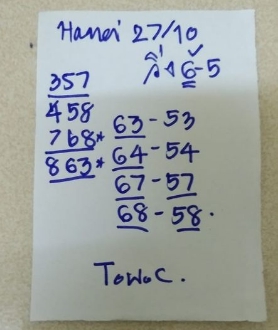 Hanoi 27/10
วิ่ง 6-5
357
458
768*
863*
63-53
64-54
67-57
68-58.
Towoc.